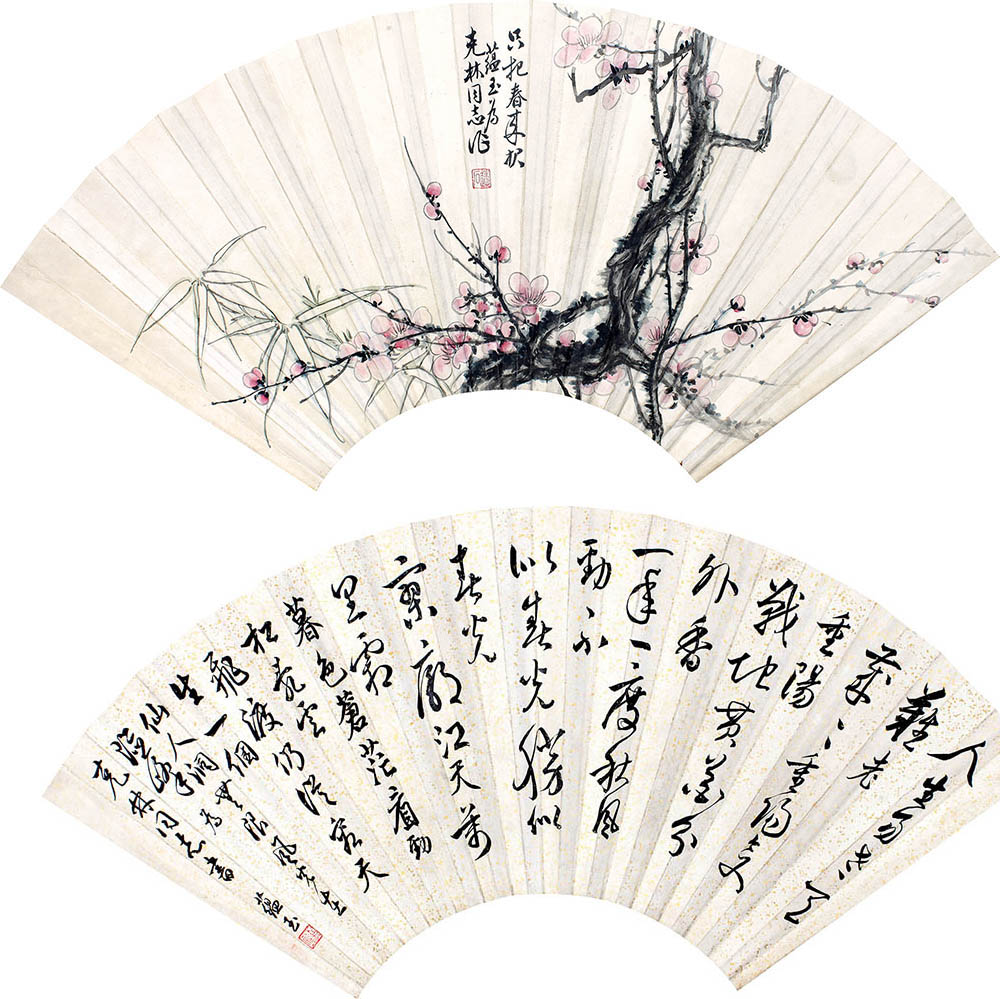 只把春来报
蘊玉为
克林同志作
人生易老天
難老
歲〻重陽今又
重陽
戰地黄花分
外香
一年一度秋風
勁不
似春光勝似
春光
寥廓江天萬
里霜
暮色蒼茫看勁
松亂雲
飛渡仍從容天
生一個
仙人洞無限風光在
險峰
為
克林同志書
蘊玉